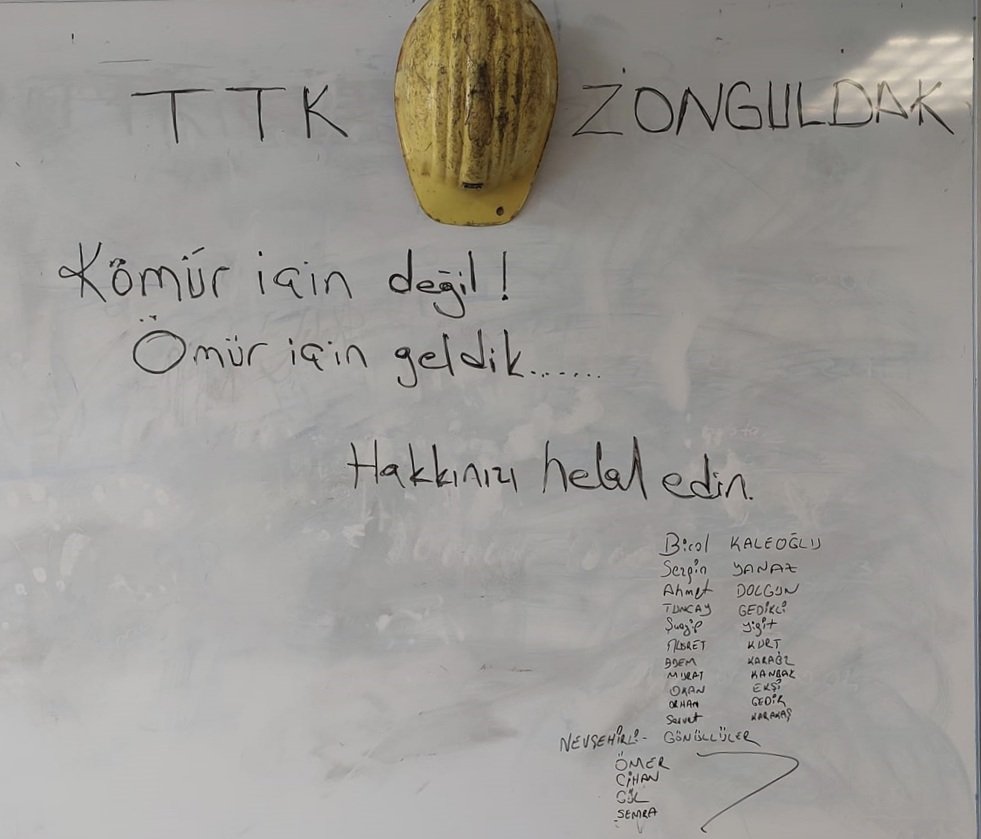 TTK ZONGULDAK
Kömür için değil!
Ömür için geldik......
Hakkınızı helal edin.
Birol KALEOĞLU
Sezgin YANAZ
Ahmet DOLGUN
TUNCAY GEDİKLİ
Şuayip Yiğit
NUSRET KURT
ADEM
MURAT KANBAK
OKAN EKŞİ
ORHAN GEDİK
Servet KARAKAŞ
NEVŞEHİRLİ - GÖNÜLLÜLER
ÖMER
CİHAN
GÜL
SEMRA